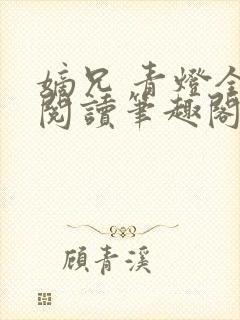 嫡兄 青燈全
閱讀筆趣閣
顧青溪